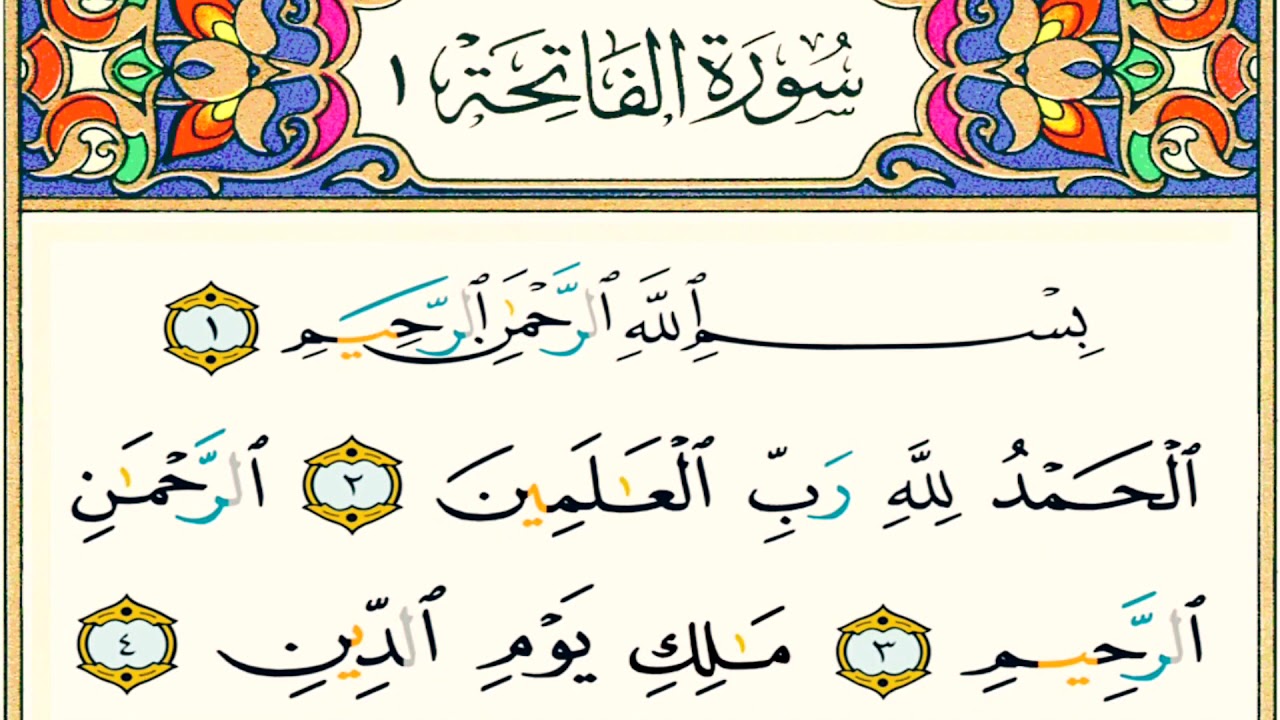 سُورَةُ الفَاتِحَةِ ١
بِسْمِ ٱللَّهِ ٱلرَّحْمَٰنِ ٱلرَّحِيمِ ١
ٱلْحَمْدُ لِلَّهِ رَبِّ ٱلْعَٰلَمِينَ ٢ ٱلرَّحْمَٰنِ
ٱلرَّحِيمِ ٣ مَٰلِكِ يَوْمِ ٱلدِّينِ ٤